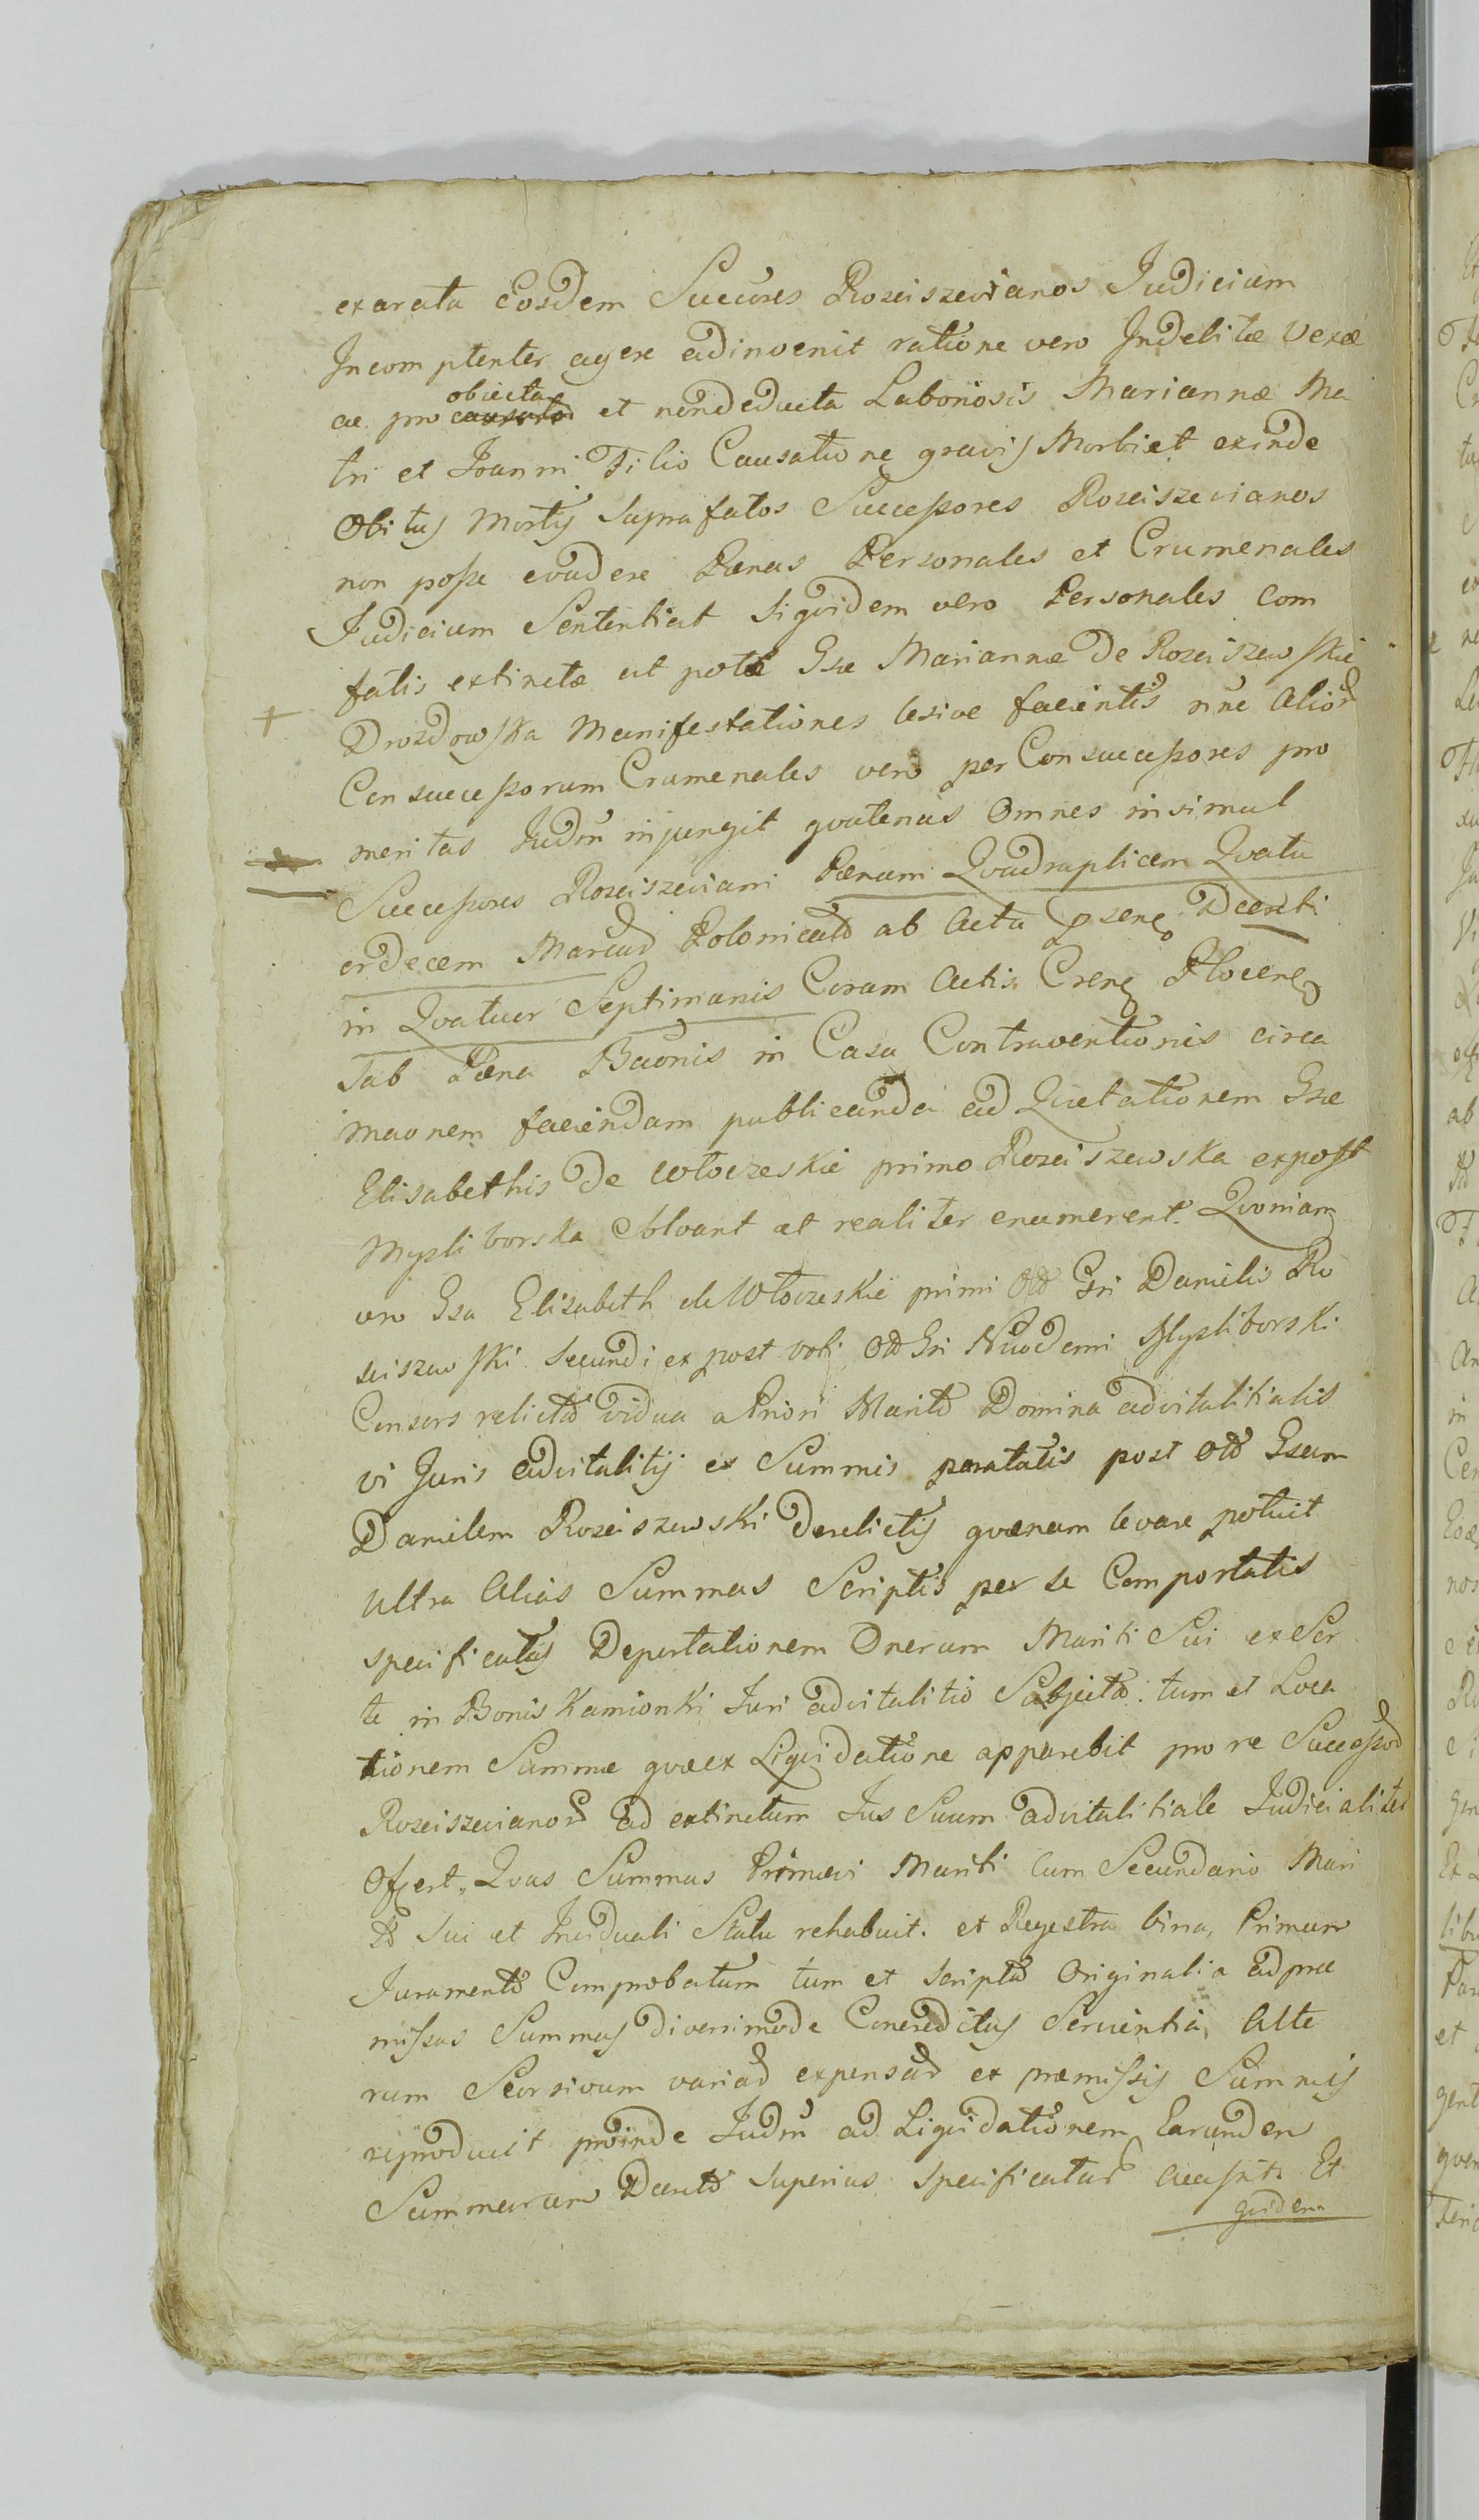 exarata Eosdem Succres Rozciszevianos Judicium
Incomptenter agere adinvenit ratione vero Indebitæ Vexæ
ae pro causato obiecta et nondeducta Laboriosis Mariannæ Ma
tri et Joanni Filio Causatione gravis Morbi et exinde
Obitus Mortis Suprafatos Successores Rozciszevianos
non posse evadere Pænas Personales et Crumenales
Judicium Sententiat Siqvidem vero Personales Com
fatis extinctæ ut potæ Gsæ Mariannæ De Rozciszewskie
Drozdowska Manifestationes lesive facientis nne Alior
Consuccessorum Crumenales vero per Consuccessores pro
meritas Judm injungit qvatenus Omnes insimul
Successores Rozciszeviani Pænam Qvadruplicem Qvatu
ordecem Marcar Polonical ab Actu Psene Decreti
in Qvatuor Septimanis Coram Actis Crens Plocens
Sub Pæna Bannis in Casu Contraventionis circa
maonem faciendam publicanda ad Qvietationem Gsæ
Elisabethis De Włoczeskie primo Rozciszewska expost
Mysliborska Solvant et realiter enumerent. Qvoniam
vero Gsa Elizabeth de Włoczeskie primi Old Gsi Danielis Ro
sciszewski Secundi expost voti Old Gsi Nicodemi Mysliborski
Consors relicta vidua a Priori Marito Domina advitalitialis
vi Juris advitalitij ex Summis paratatis post Old Gsum
Danielem Rozciszewski Derelictis qvænam levare potuit
ultra Alias Summas Scriptis per se Comportatis
specificatas Deportationem Onerum Mariti Sui ex Sor
te in Bonis Kamionki Juri advitalitio Subjecta tum et Loca
tionem Summæ qvæ ex Liqvidatione apparebit pro re Successor
Rozciszevianor ad extinctum Jus Suum advitalitiale Judicialiter
Offert, Qvas Summas Primævi Mariti Cum Secundario Mari
to Sui et Inciduali Statu rehabuit. et Regestra bina, Primum
Juramento Comprobatum tum et Scripta Originalia ad præ
missas Summas diverimode Concreditas Servientia, Alte
rum Seorsivum variar expensar ex præmissis Summis
reproducit proinde Judm ad Liqvidationem Earunden
Summarum Decreto Superius Specificatar Accessit. Et
qvidem